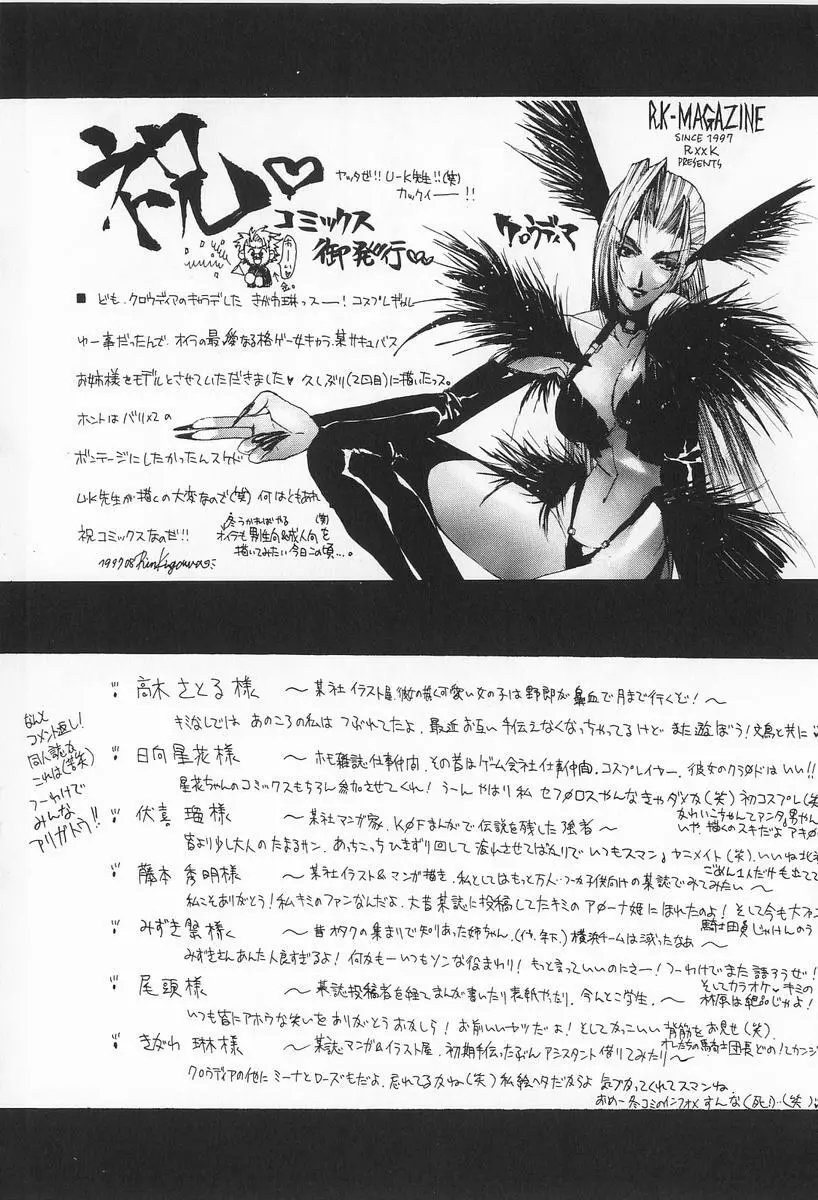 祝♡
ヤッタぜ!! U-K先生!! (笑)
カックイー——!!
コミックス
御発行♡♡
R.K-MAGAZINE
SINCE 1997
RxxK
PRESENTS
クロウディア
■ ども、クロウディアのキャラデした きがわ琳っスー! コスプレギャル
ゆー事だったんで、オイラの最愛なる格ゲー女キャラ、某サキュバス
お姉様をモデルとさせていただきました♥ 久しぶり(2回目)に描いたっス。
ホントはバリバリの
ボンテージにしたかったんスケド
U-K先生が描くの大変なので(笑) 何はともあれ
祝コミックスなのだ!!
オイラも男性向&成人向を
描いてみたい今日この頃…。
1997.08
なんと
コメント返し!
同人誌な
これは(苦笑)
つーわけで
みんな
アリガトウ!!
高木 さとる 様 〜某社イラスト屋、彼の描く可愛い女の子は野郎が鼻血で月まで行くぞ!〜
キミなしでは あのころの私は つぶれてたよ、最近お互い手伝えなくなっちゃってるけど また遊ぼう! 文鳥と共に
日向 星花 様 〜ホモ雑誌仕事仲間、その昔はゲーム会社仕事仲間、コスプレイヤー、彼女のクラØドはいい!!
星花ちゃんのコミックスもちろん参加させてくれ! うーん やはり私 セフØロスやんなきゃダメカ(笑) 初コスプレ(笑
伏喜 瑠 様 〜某社マンガ家、KØFまんがで伝説を残した強者〜
かわいこちゃんてマンタ
いや、描くのスキだよ アキØ
皆より少し大人の たよるサン、あっちこっちひきずり回して 疲れさせてばかりで いつもスマン。ヤニメイト(笑)、いいね北
藤本 秀明様 〜某社イラスト&マンガ描き、私としてはもっと万人…つーか子供向けの某誌でみてみたい〜
ごめん1人だけも立てて
私こそありがとう! 私キミのファンなんだよ、大昔某誌に投稿してたキミのアØーナ姫にほれたのよ! そして今も大ファン
みずき 祭 様く 〜昔オタクの集まりで知りあった姉ちゃん、(イヤ、年下) 横浜チームは減ったなぁ〜
騎士団員じゃけんのう
みずきさん あんた人良すぎるよ! 何かもーいつもソンなまわり! もっと言っていいのにさー! つーわけでまた語ろうぜ!
尾頭 様 〜某誌投稿者を経てまんが書いたり表紙やったり、今んとこ学生、〜
そしてカラオケ♥キミの
林原は絶品じゃよ!
いつも皆にアホウな笑いを ありがとう おかしら! お前いいヤツだよ! としてかっこいい 背筋をお見せ(笑)
きがわ 琳様 〜某誌マンガ&イラスト屋、初期手伝ったぶんアシスタント借りてみたり〜
オレたちの騎士団長どの! てカンジ
クロウディアの他にミーナとローズもだよ、忘れてるかね(笑) 私絵ヘタだからよ 気づかってくれてスマンね、
おめー冬コミのインフォメ すんな(死)…(笑)